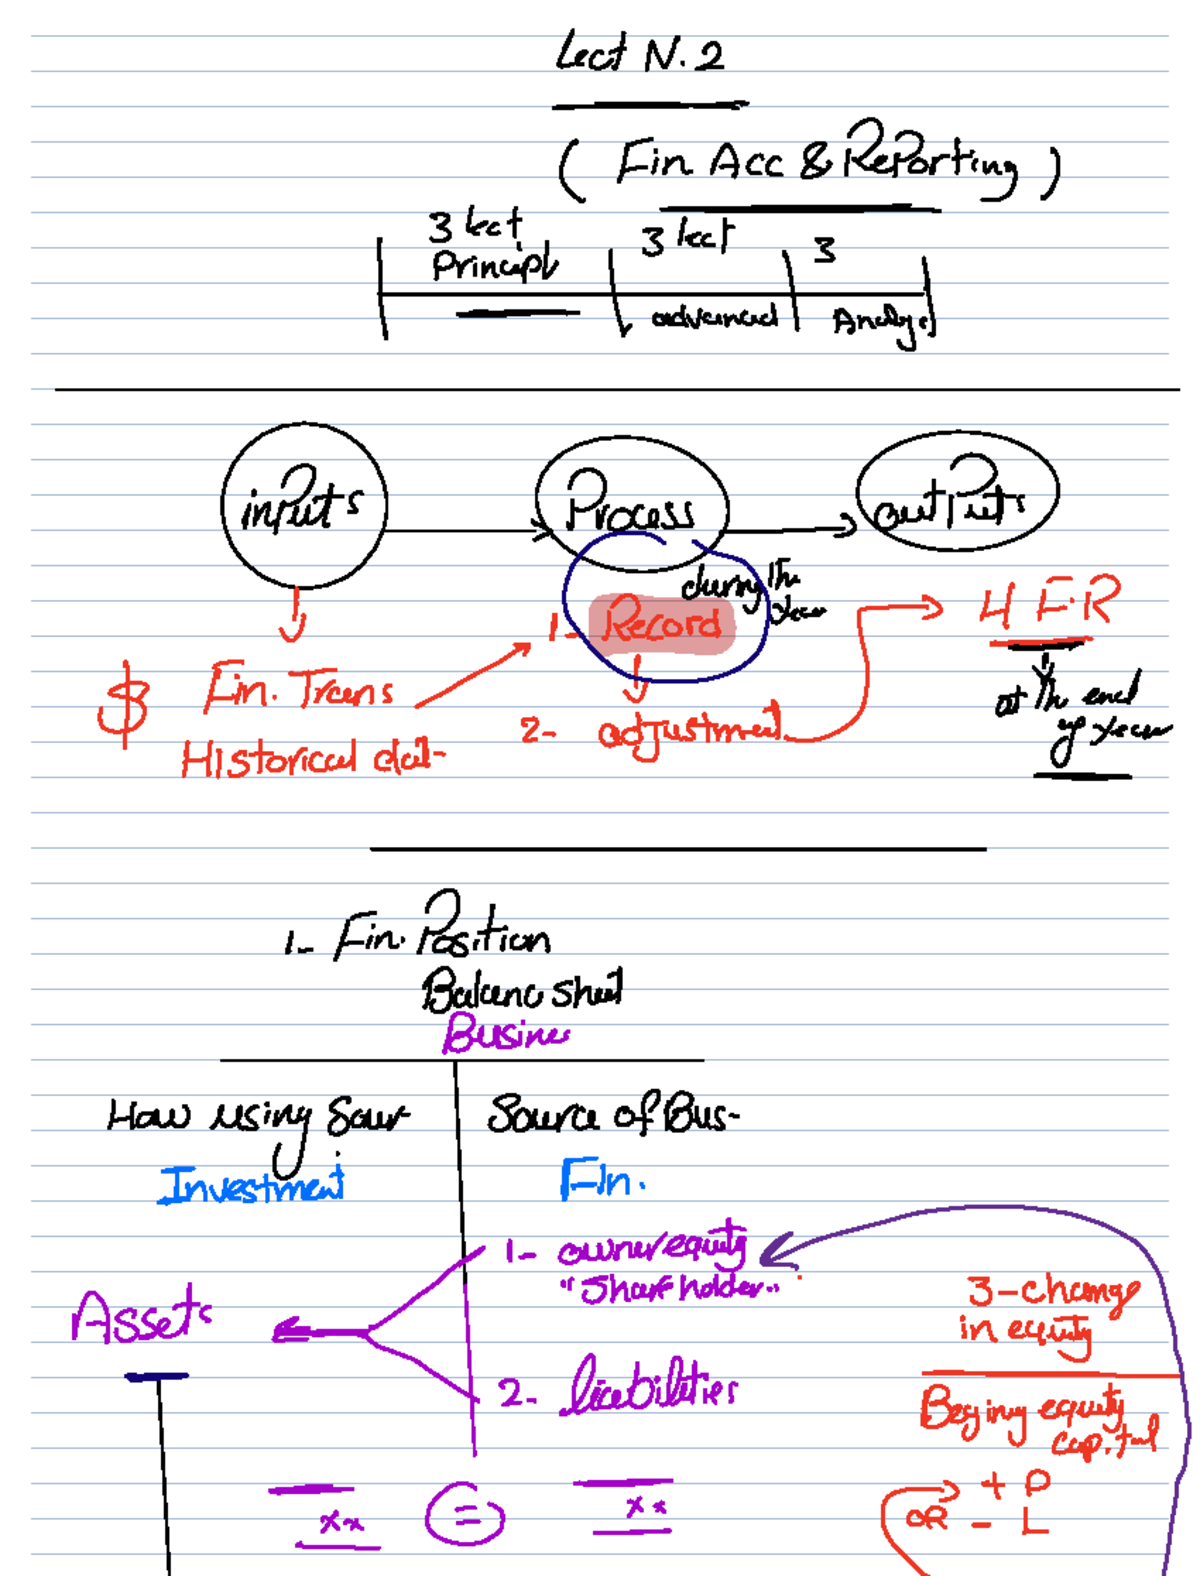 Lect N. 2
( Fin Acc & Reporting )
3 lect 3 lect 3
Principl
advanced Analys
inputs Process outputs
during the year
1- Record
4 F.R
$ Fin. Trans
at the end
of year
2- adjustment
Historical dat-
1- Fin. Position
Balanc sheet
Busines
How using Sour- Source of Bus-
Investment Fin.
1- owner equity
"Shareholder"
3-change
in equity
Assets
2- liabilities
Begining equity
capital
+ P
OR - L
xx = xx